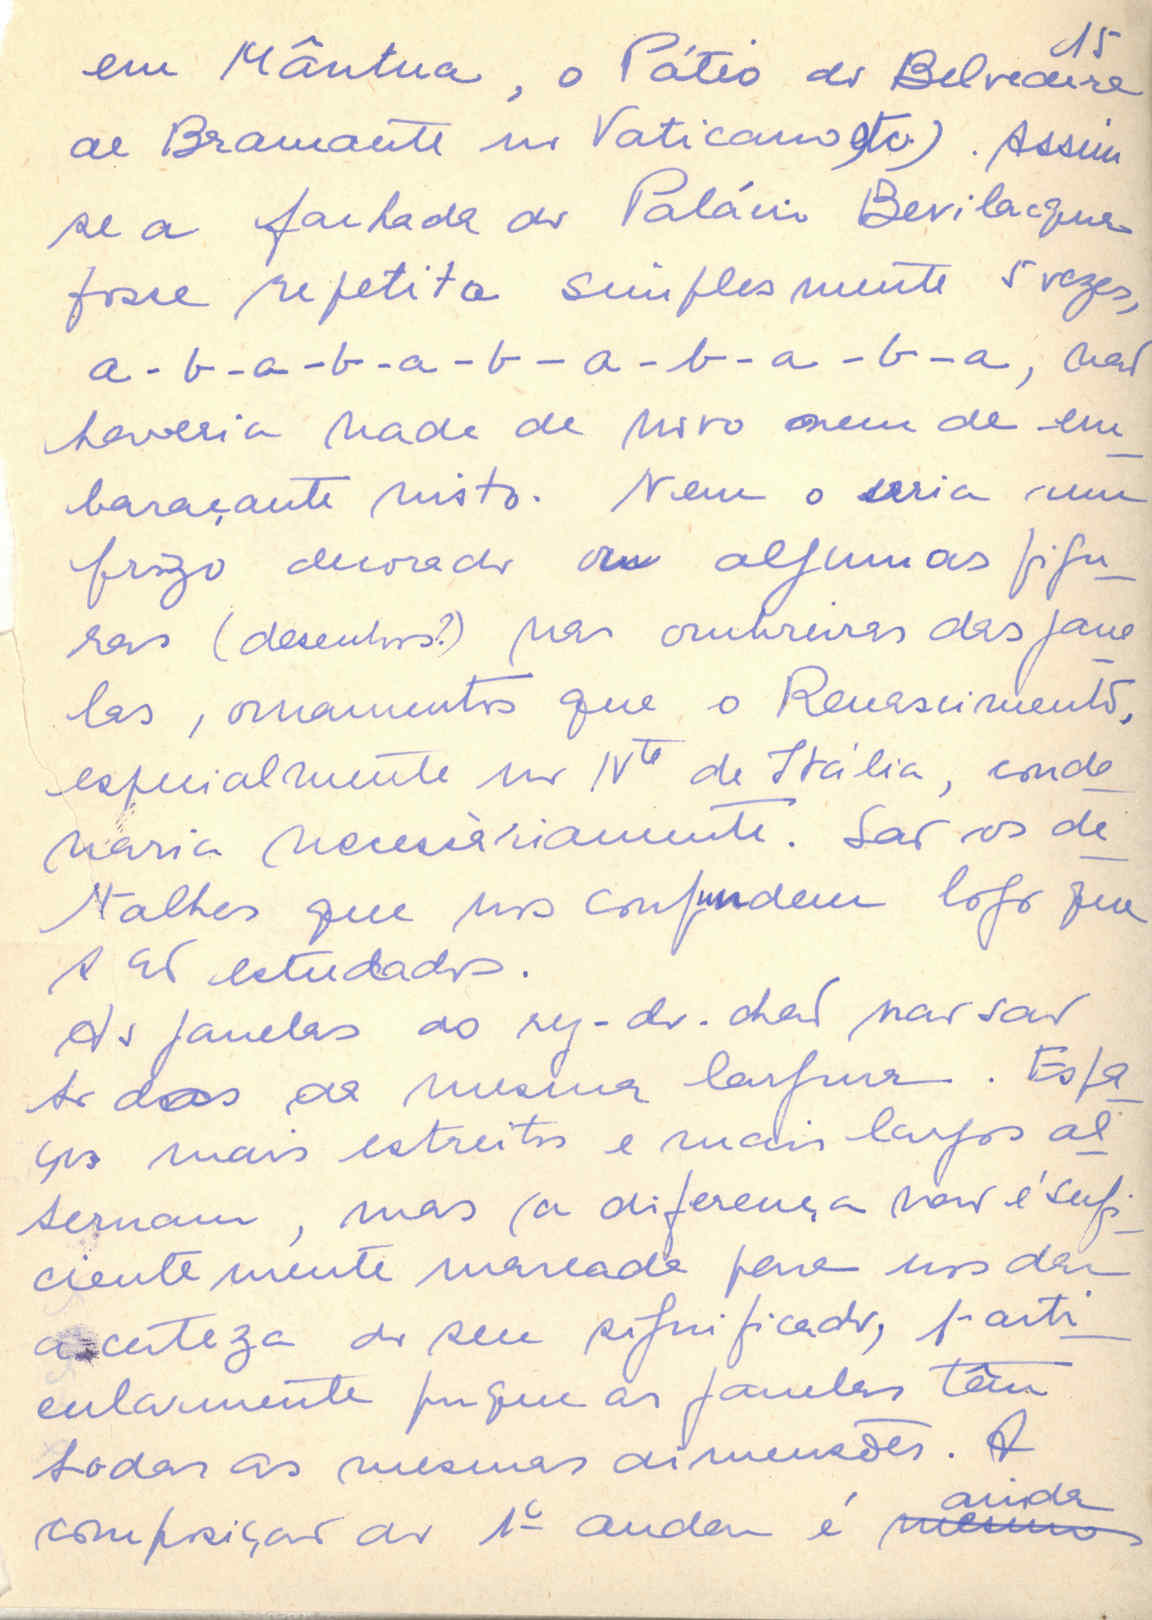 15
em Mântua, o Pátio do Belvedere
de Bramante no Vaticano etc.). Assim
se a fachada do Palácio Bevilacqua
fosse repetita simplesmente 5 vezes,
a-b-a-b-a-b-a-b-a-b-a, não
haveria nada de novo nem de em-
baraçante nisto. Nem o seria um
frizo decorado ou algumas figu-
ras (desenhos?) nas ombreiras das jane
las, ornamentos que o Renascimento,
especialmente no Nte de Itália, conde
naria necessàriamente. São os de
talhes que nos confundem logo que
são estudados.
As janelas do rez-do-chão não são
todas da mesma largura. Espa
ços mais estreitos e mais largos al
ternam, mas a diferença não é sufi-
cientemente marcada para nos dar
a certeza do seu significado, parti
cularmente porque as janelas têm
todas as mesmas dimensões. A
composição do 1º andar é ainda